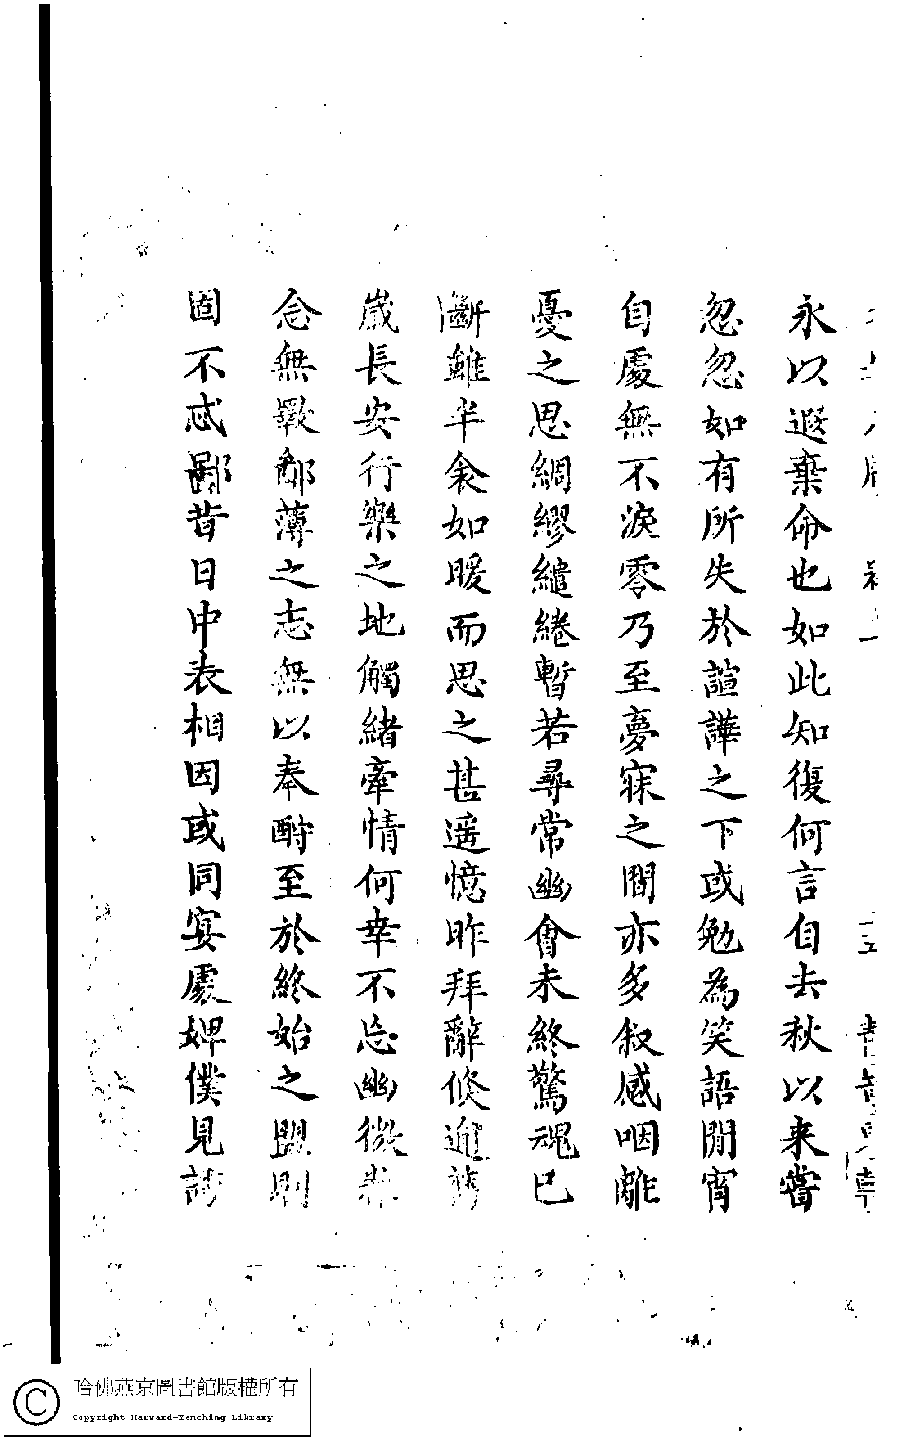 永以遐棄命也如此知復何言自去秋以来嘗
忽忽如有所失於諠譁之下或勉為笑語閒宵
自處無不淚零乃至夢寐之間亦多叙感咽離
憂之思綢繆繾綣暫若尋常幽會未終驚魂已
斷雖半衾如暖而思之甚遥憶昨拜辭倐逾舊
歲長安行樂之地觸緒牽情何幸不忘幽微眷
念無斁鄙薄之志無以奉酧至於終始之盟則
固不忒鄙昔日中表相因或同宴處婢僕見誘
哈佛燕京圖書館版權所有
Copyright Harvard-Yenching Library